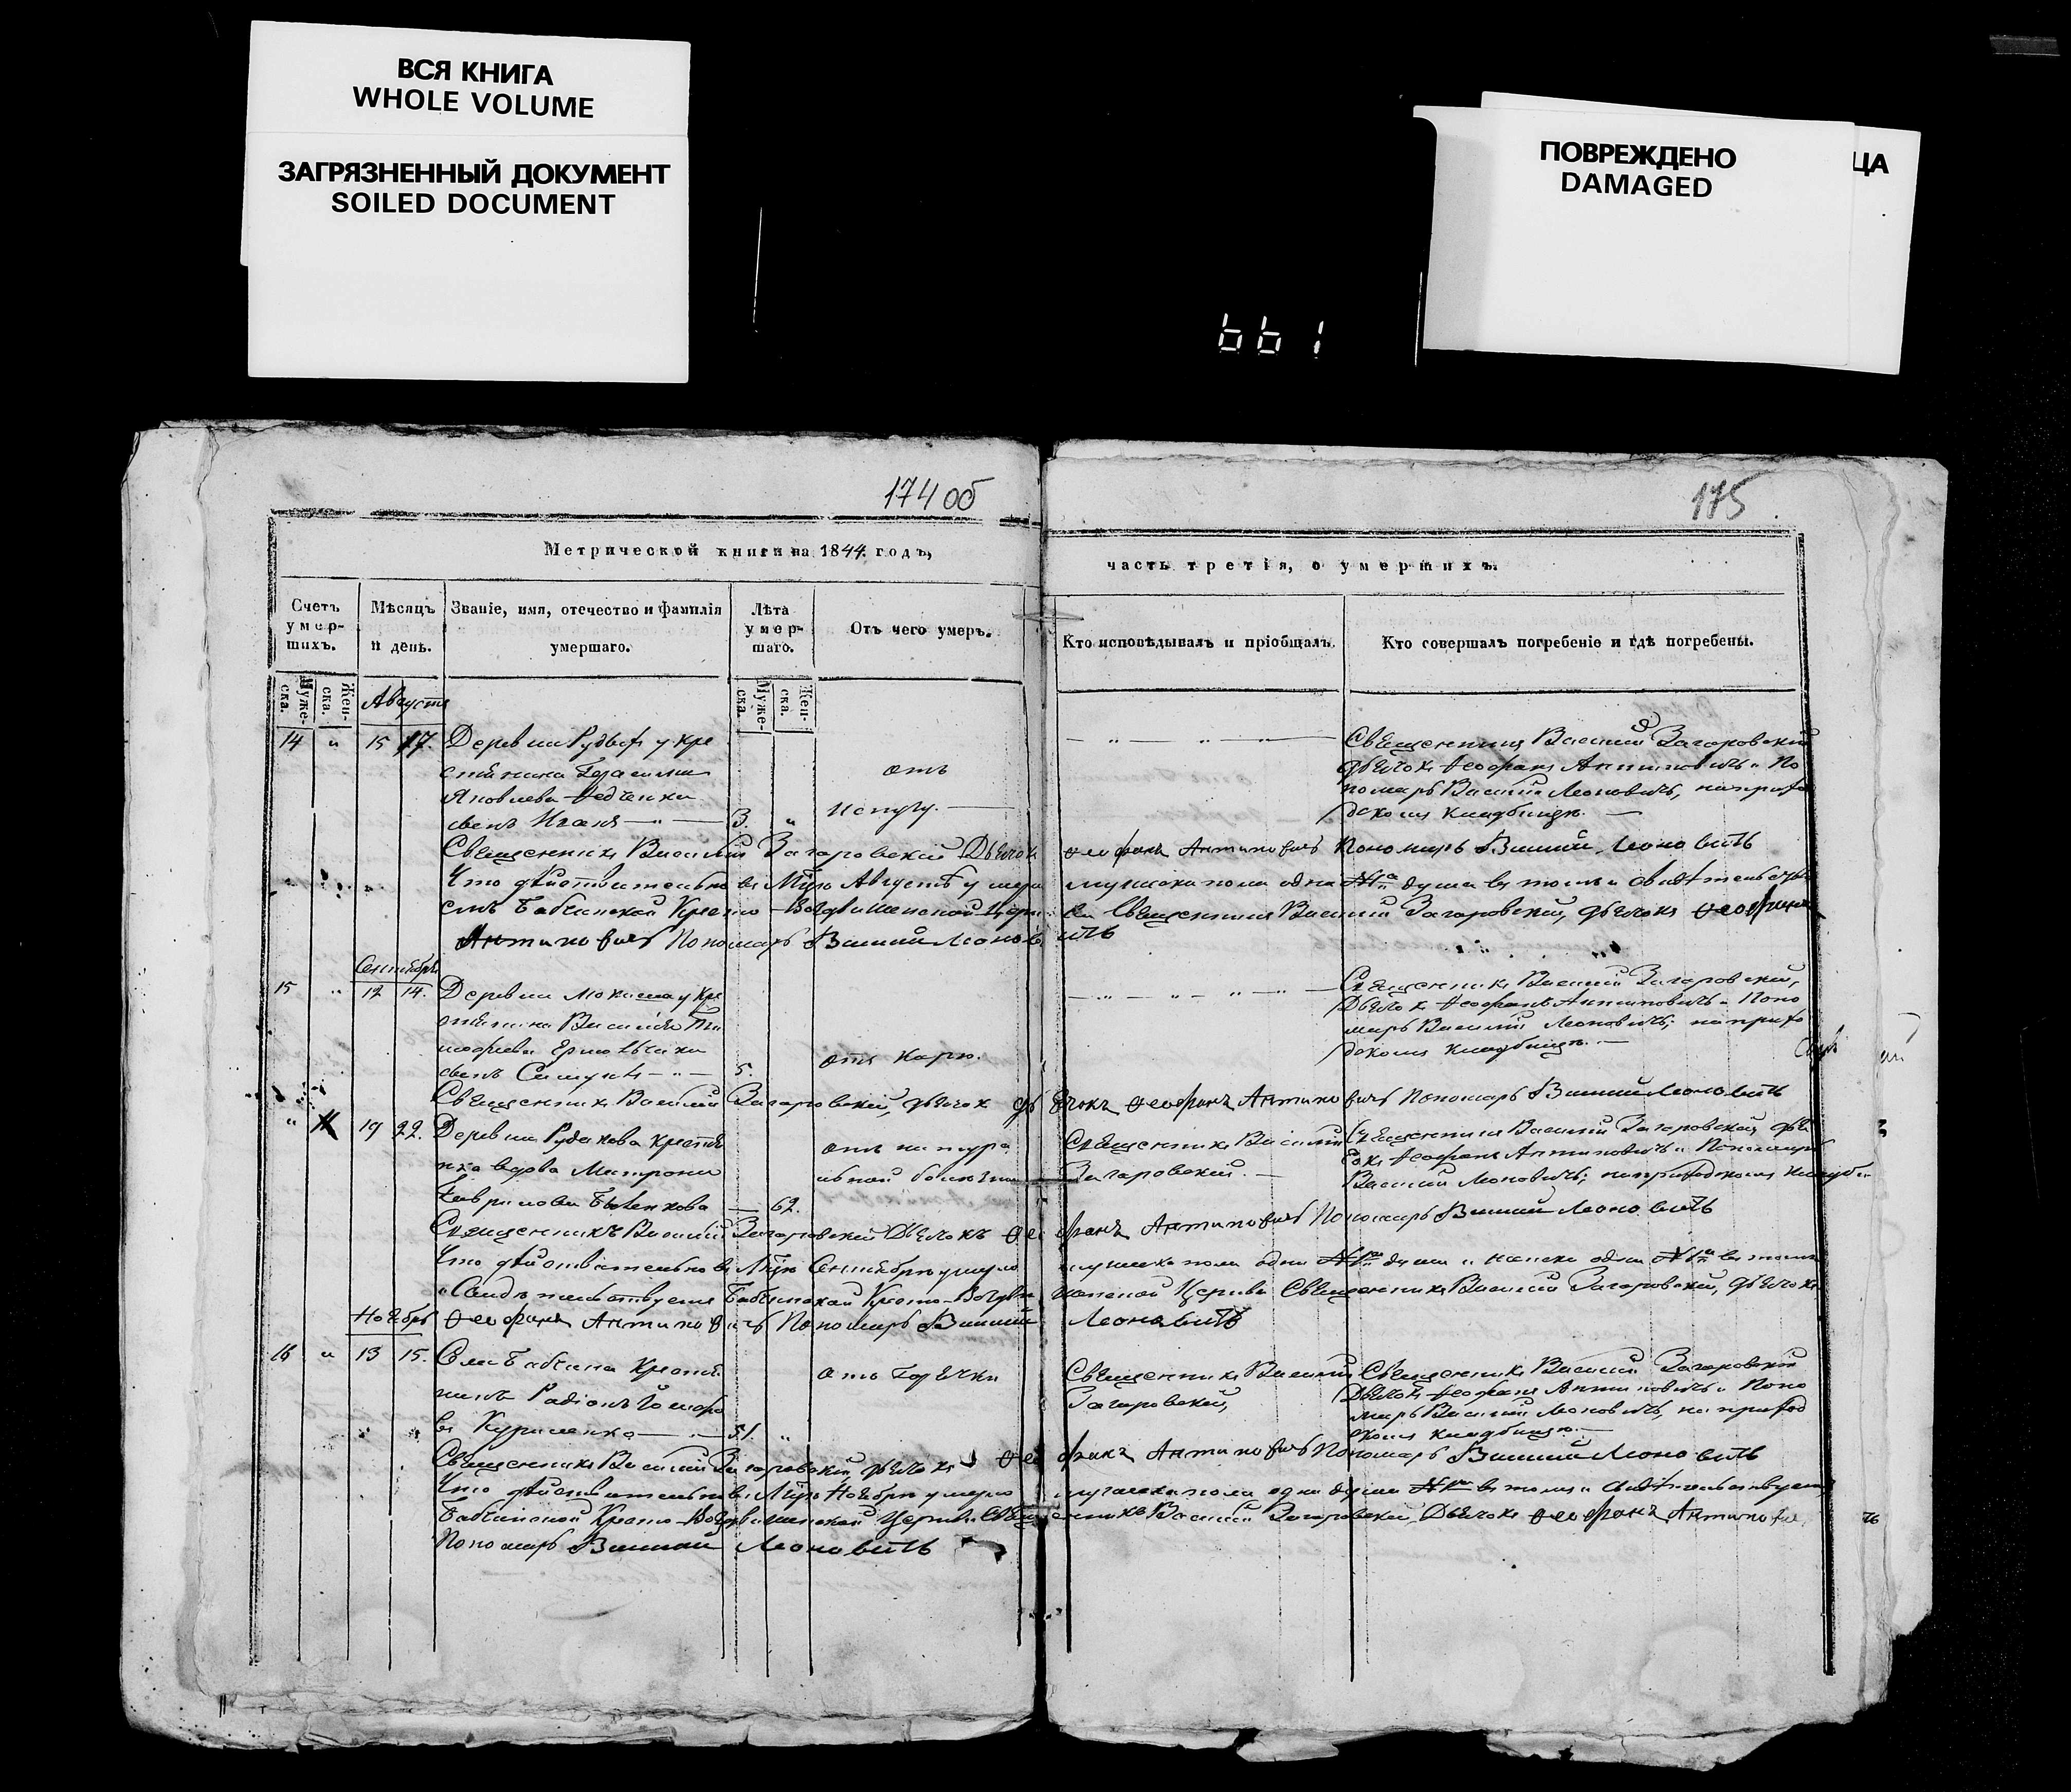 ВСЯ КНИГА
WHOLE VOLUME
ЗАГРЯЗНЕННЫЙ ДОКУМЕНТ
SOILED DOCUMENT
ПОВРЕЖДЕНО
DAMAGED
ЦА
661
174 об
175
Метрической книги на 1844 годъ,
часть третія, о умершихъ.
Счетъ
умер-
шихъ.
Мѣсяцъ
и день.
Званіе, имя, отечество и фамилія
умершаго.
Лѣта
умер-
шаго.
Отъ чего умеръ.
Кто исповѣдывалъ и пріобщалъ.
Кто совершалъ погребеніе и гдѣ погребены.
Муже-
ска.
Жен-
ска.
Муже-
ска.
Жен-
ска.
Августъ
14 " 15 17. Деревни у кре
стьянина Герасима
Яковлева Ѳедченка
сынъ Иванъ 3. "
отъ
испугу.
Священникъ Василий Загоровский
дьячокъ Ѳеофанъ Антиповичь и По
номарь Василий Леоновичь, на прихо
дскомъ кладбищѣ.
Священникъ Василий Загоровский Дьячокъ Ѳеофанъ Антиповичь Пономарь Василий Леоновичь
Что действительно въ Мцѣ Августѣ умерло мужеска пола одна №1 душа въ томъ и свидѣтельству
емъ Бабчинской Кресто-Воздвиженской Церкви Священникъ Василий Загоровский, дьячокъ Ѳеофанъ
Антиповичь Пономарь Василий Леоновичь
Сентябрь
15 " 12 14. Деревни у кре
стьянина Василія Ти
мофеева
сынъ 5.
отъ кору.
Священникъ Василий Загоровский,
Дьячокъ Ѳеофанъ Антиповичь и Поно
марь Василий Леоновичь; на прихо
дскомъ кладбищѣ.
Священникъ Василий Загоровский, дьячокъ Ѳеофанъ Антиповичь Пономарь Василий Леоновичь
" 19 22. Деревни Рудакова крестья
нка вдова Матрона
Гаврилова 62.
отъ натура
льной болѣзни
Священникъ Василий
Загоровский.
Священникъ Василий Загоровский дья
чокъ Ѳеофанъ Антиповичь и Пономарь
Василий Леоновичь; на приходскомъ кладби
Священникъ Василий Загоровский Дьячокъ Ѳеофанъ Антиповичь Пономарь Василий Леоновичь
Что действительно въ Мцѣ Сентябрѣ умерло мужеска пола одна №1 душа и женска одна №1 въ томъ
и Свидѣтельствуемъ Бабчинской Кресто-Воздвиженской Церкви Священникъ Василий Загоровский, дьячокъ
Ѳеофанъ Антиповичь Пономарь Василий Леоновичь
Ноябрь
16 " 13 15. Села Бабчина крестья
нинъ Радіонъ
въ Куриленко 51. "
отъ Горячки
Священникъ Василий
Загоровский,
Священникъ Василий Загоровский
Дьячокъ Ѳеофанъ Антиповичь и Поно
марь Василий Леоновичь, на приход
скомъ кладбищѣ.
Священникъ Василий Загоровский, дьячокъ Ѳеофанъ Антиповичь Пономарь Василий Леоновичь
Что действительно въ Мцѣ Ноябрѣ умерло мужеска пола одна душа №1 въ томъ и свидѣтельствуемъ
Бабчинской Кресто-Воздвиженской Церкви Священникъ Василий Загоровский Дьячокъ Ѳеофанъ Антипови
Пономарь Василий Леоновичь